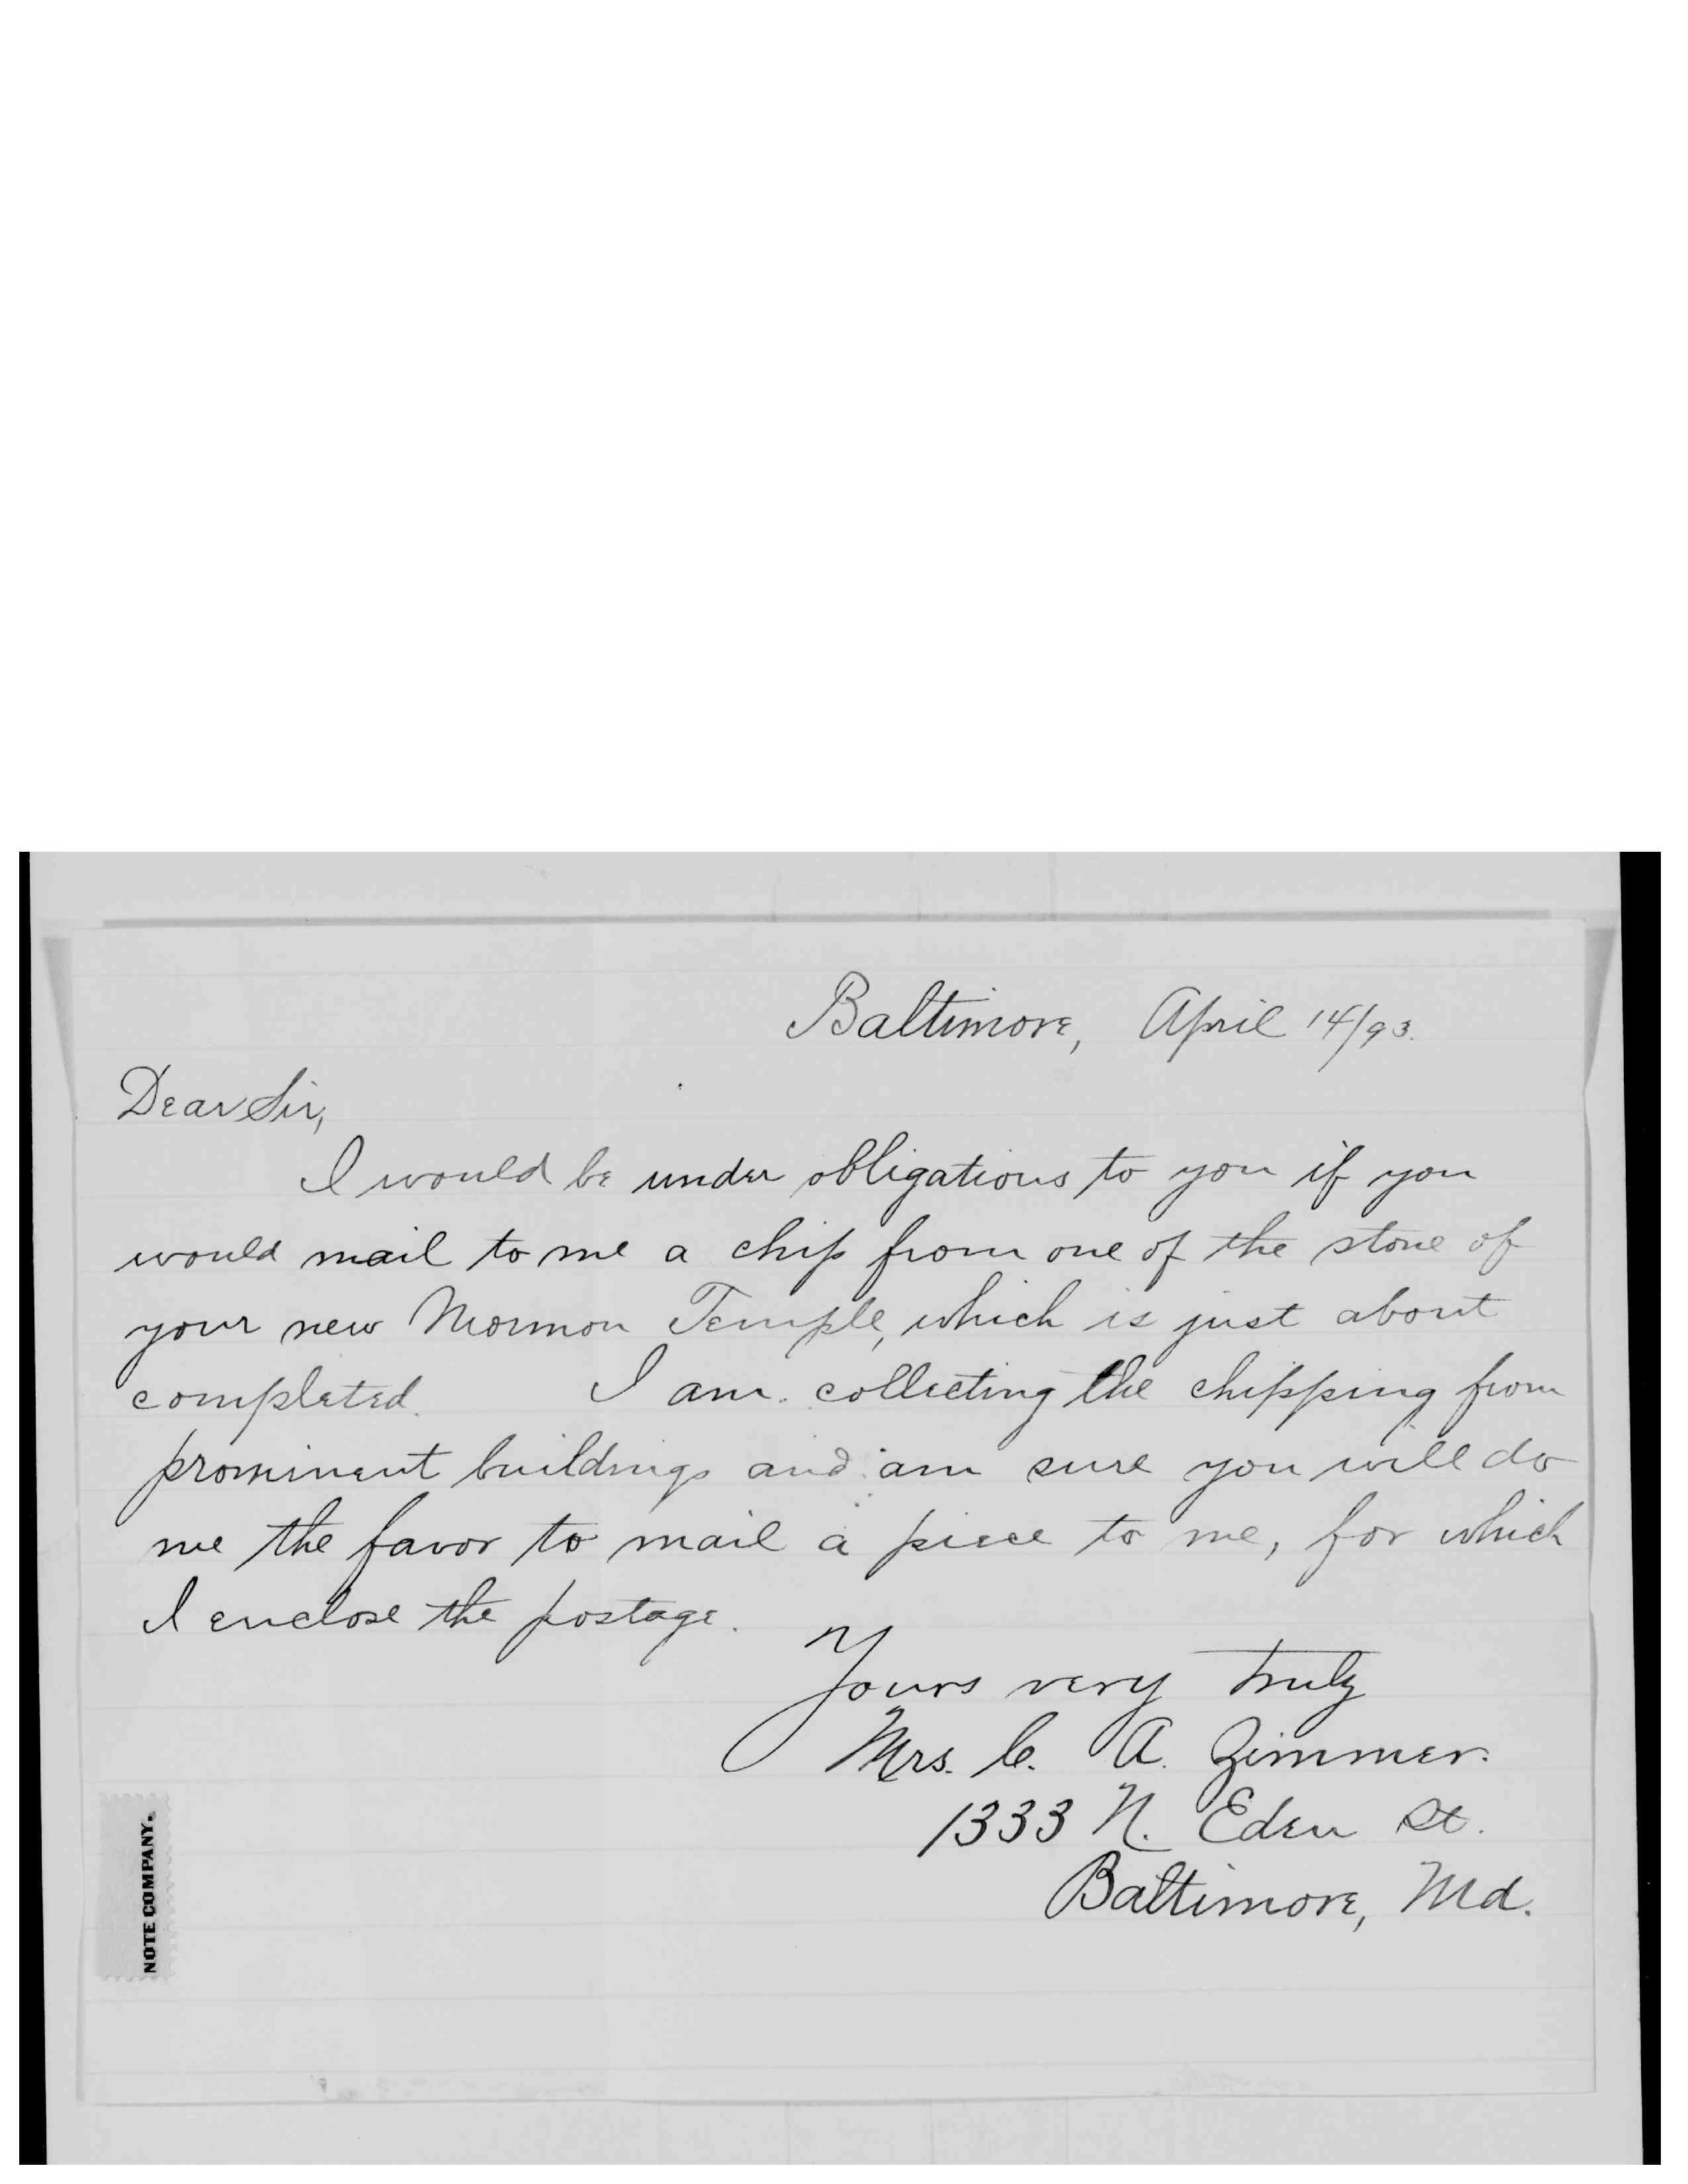 Baltimore, April 14/93.
Dear Sir,
I would be under obligations to you if you
would mail to me a chip from one of the stone of
your new Mormon Temple, which is just about
completed. I am collecting the chipping from
prominent buildings and am sure you will do
me the favor to mail a piece to me, for which
I enclose the postage.
Yours very truly
Mrs. C. A. Zimmer.
1333 N. Eden St.
Baltimore, Md.
NOTE COMPANY.